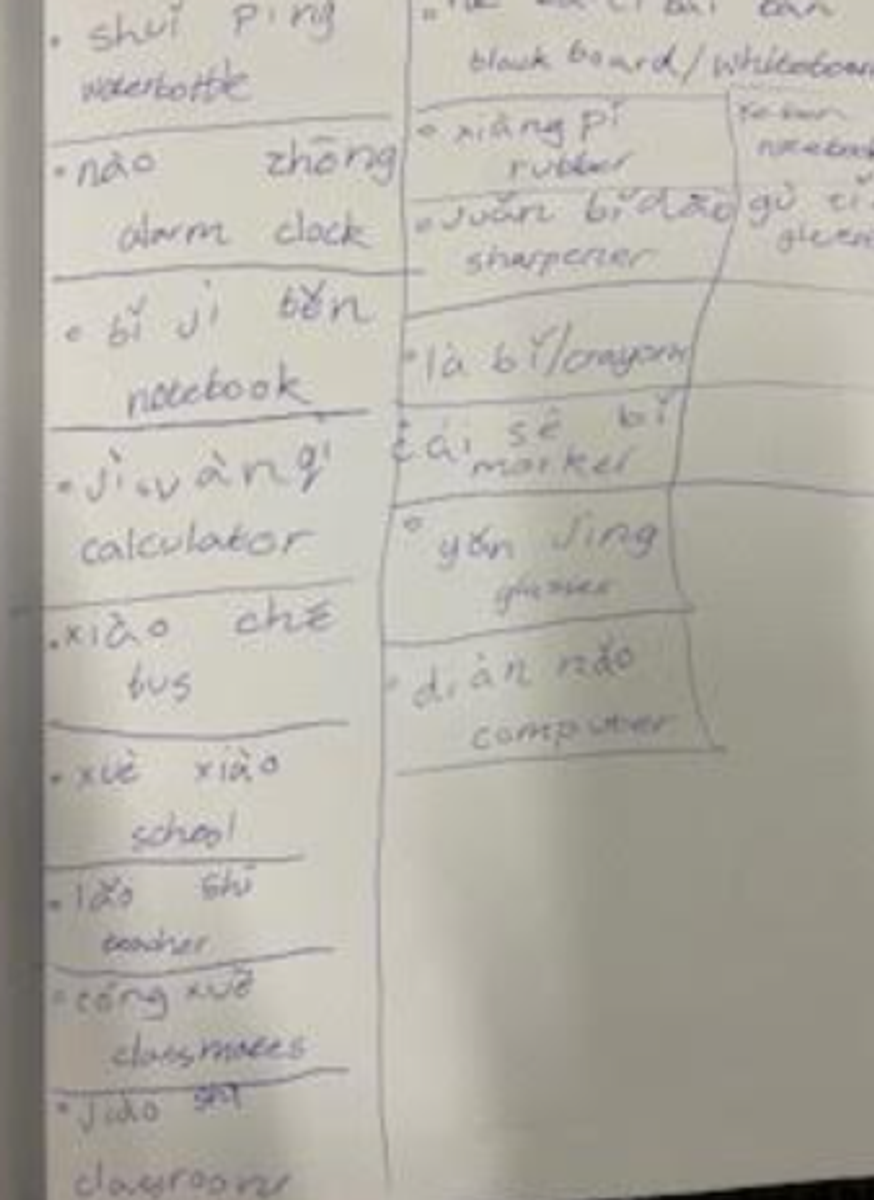 • shuǐ píng
waterbottle
• nào zhōng
alarm clock
• bǐ jì běn
notebook
calculator
• xiào chē
bus
• xué xiào
school
• lǎo shī
teacher
• cóng xué
classmates
• jiào shì
classroom
black board/whiteboar
• xiàng pí
rubber
• juǎn bǐ dāo
sharpener
• là bǐ/crayon
cǎi sè bǐ
marker
• yǎn jìng
glasses
• diàn nǎo
computer
notebook